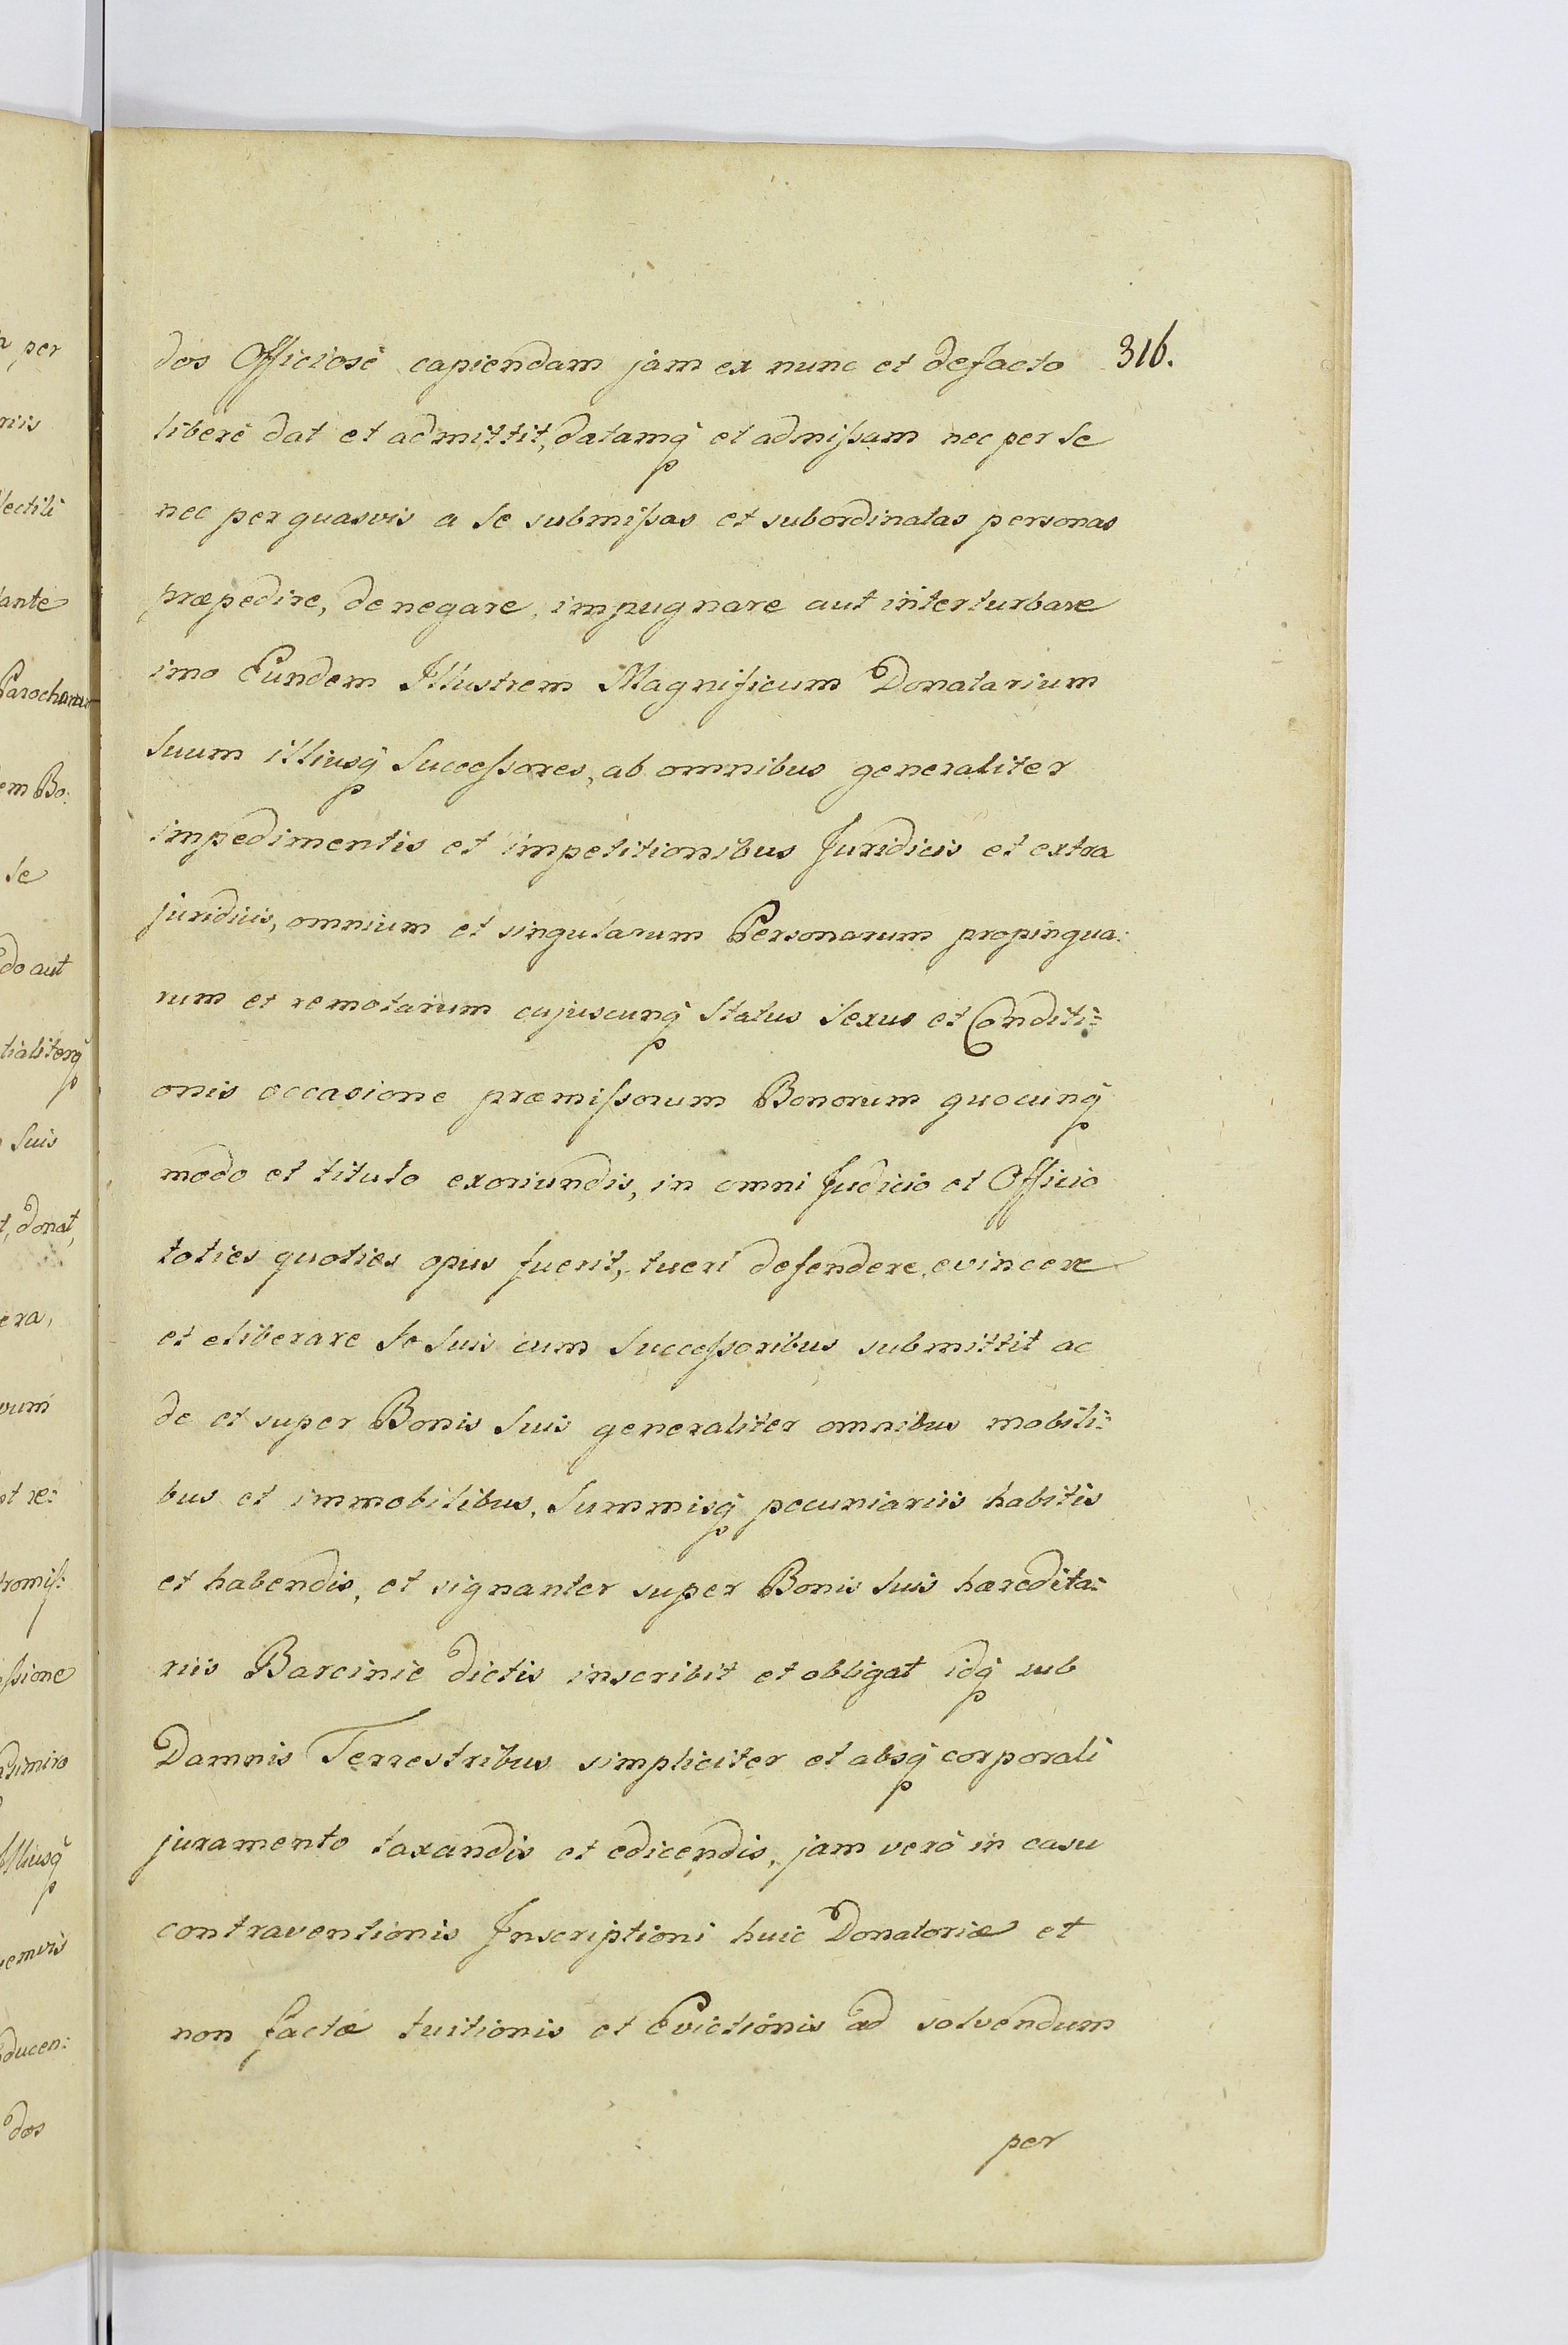 316.
dos Officiosè capiendam jam ex nunc et defacto
liberè dat et admittit, datamq̃ et admiſsam nec per se
nec per quasvis a se submiſsas et subordinatas personas
præpedire, denegare, impugnare aut interturbare
imo Eundem Illustrem Magnificum Donatarium
suum illiusq̃ Succeſsores, ab omnibus generaliter
impedimentis et impetitionibus Juridicis et extra
juridicis, omnium et singularum Personarum propinqua:
rum et remotarum cujuscunq̃ Status Sexus et Conditi:
onis occasione præmiſsorum Bonorum quocunq̃
modo et titulo exoriundis, in omni Judicio et Officio
toties quoties opus fuerit, tueri defendere evincere
et eliberare se suis cum Succeſsoribus submittit ac
de et super Bonis suis generaliter omnibus mobili:
bus et immobilibus, Summisq̃ pecuniariis habitis
et habendis, et signanter super Bonis suis hæredita:
riis Barcinie dictis inscribit et obligat idq̃ sub
Damnis Terrestribus simpliciter et absq̃ corporali
juramento taxandis et edicendis, jam verò in casu
contraventionis Inscriptioni huic Donatoriæ et
non factæ tuitionis et Evictionis ad solvendum
per
per
lectili
ante
em Bo:
se
do aut
suis
t, donat,
era,
et re:
ducen:
dos